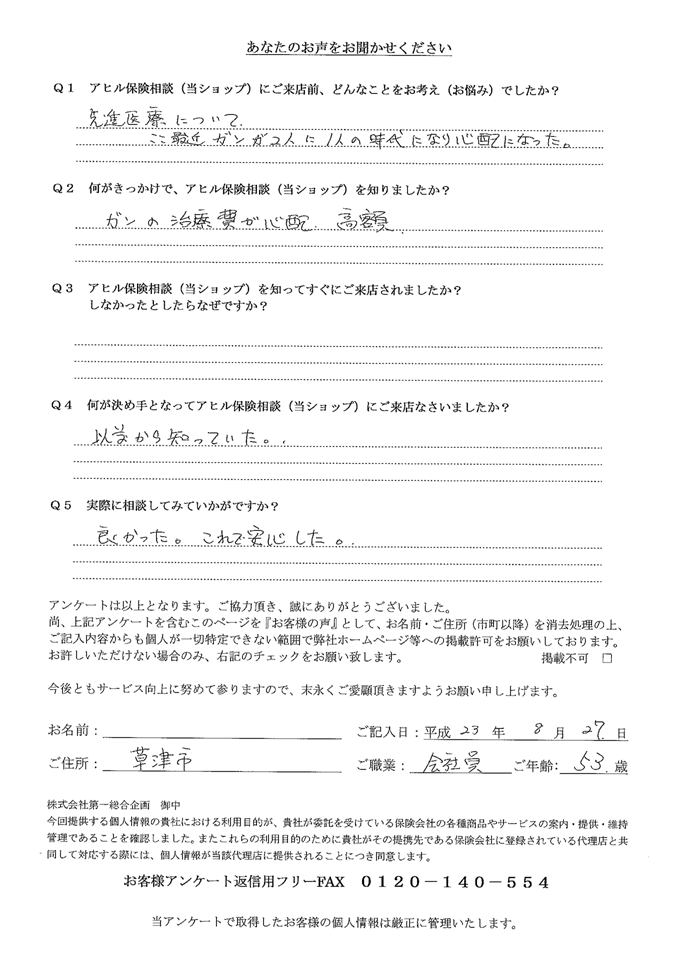 あなたのお声をお聞かせください
Q1 アヒル保険相談(当ショップ)にご来店前、どんなことをお考え(お悩み)でしたか?
先進医療について.
ここ最近 ガンが2人に1人の時代になり心配になった。
Q2 何がきっかけで、アヒル保険相談(当ショップ)を知りましたか?
ガンの治療費が心配. 高額.
Q3 アヒル保険相談(当ショップ)を知ってすぐにご来店されましたか?
しなかったとしたらなぜですか?
Q4 何が決め手となってアヒル保険相談(当ショップ)にご来店なさいましたか?
以前から知っていた。.
Q5 実際に相談してみていかがですか?
良くかった。これで安心した。.
アンケートは以上となります。ご協力頂き、誠にありがとうございました。
尚、上記アンケートを含むこのページを『お客様の声』として、お名前・ご住所(市町以降)を消去処理の上、
ご記入内容からも個人が一切特定できない範囲で弊社ホームページ等への掲載許可をお願いしております。
お許しいただけない場合のみ、右記のチェックをお願い致します。 掲載不可 □
今後ともサービス向上に努めて参りますので、末永くご愛顧頂きますようお願い申し上げます。
お名前: ご記入日:平成 23 年 8 月 27 日
ご住所: 草津市 ご職業: 会社員 ご年齢: 53. 歳
株式会社第一総合企画 御中
今回提供する個人情報の貴社における利用目的が、貴社が委託を受けている保険会社の各種商品やサービスの案内・提供・維持
管理であることを確認しました。またこれらの利用目的のために貴社がその提携先である保険会社に登録されている代理店と共
同して対応する際には、個人情報が当該代理店に提供されることにつき同意します。
お客様アンケート返信用フリーFAX 0120-140-554
当アンケートで取得したお客様の個人情報は厳正に管理いたします。